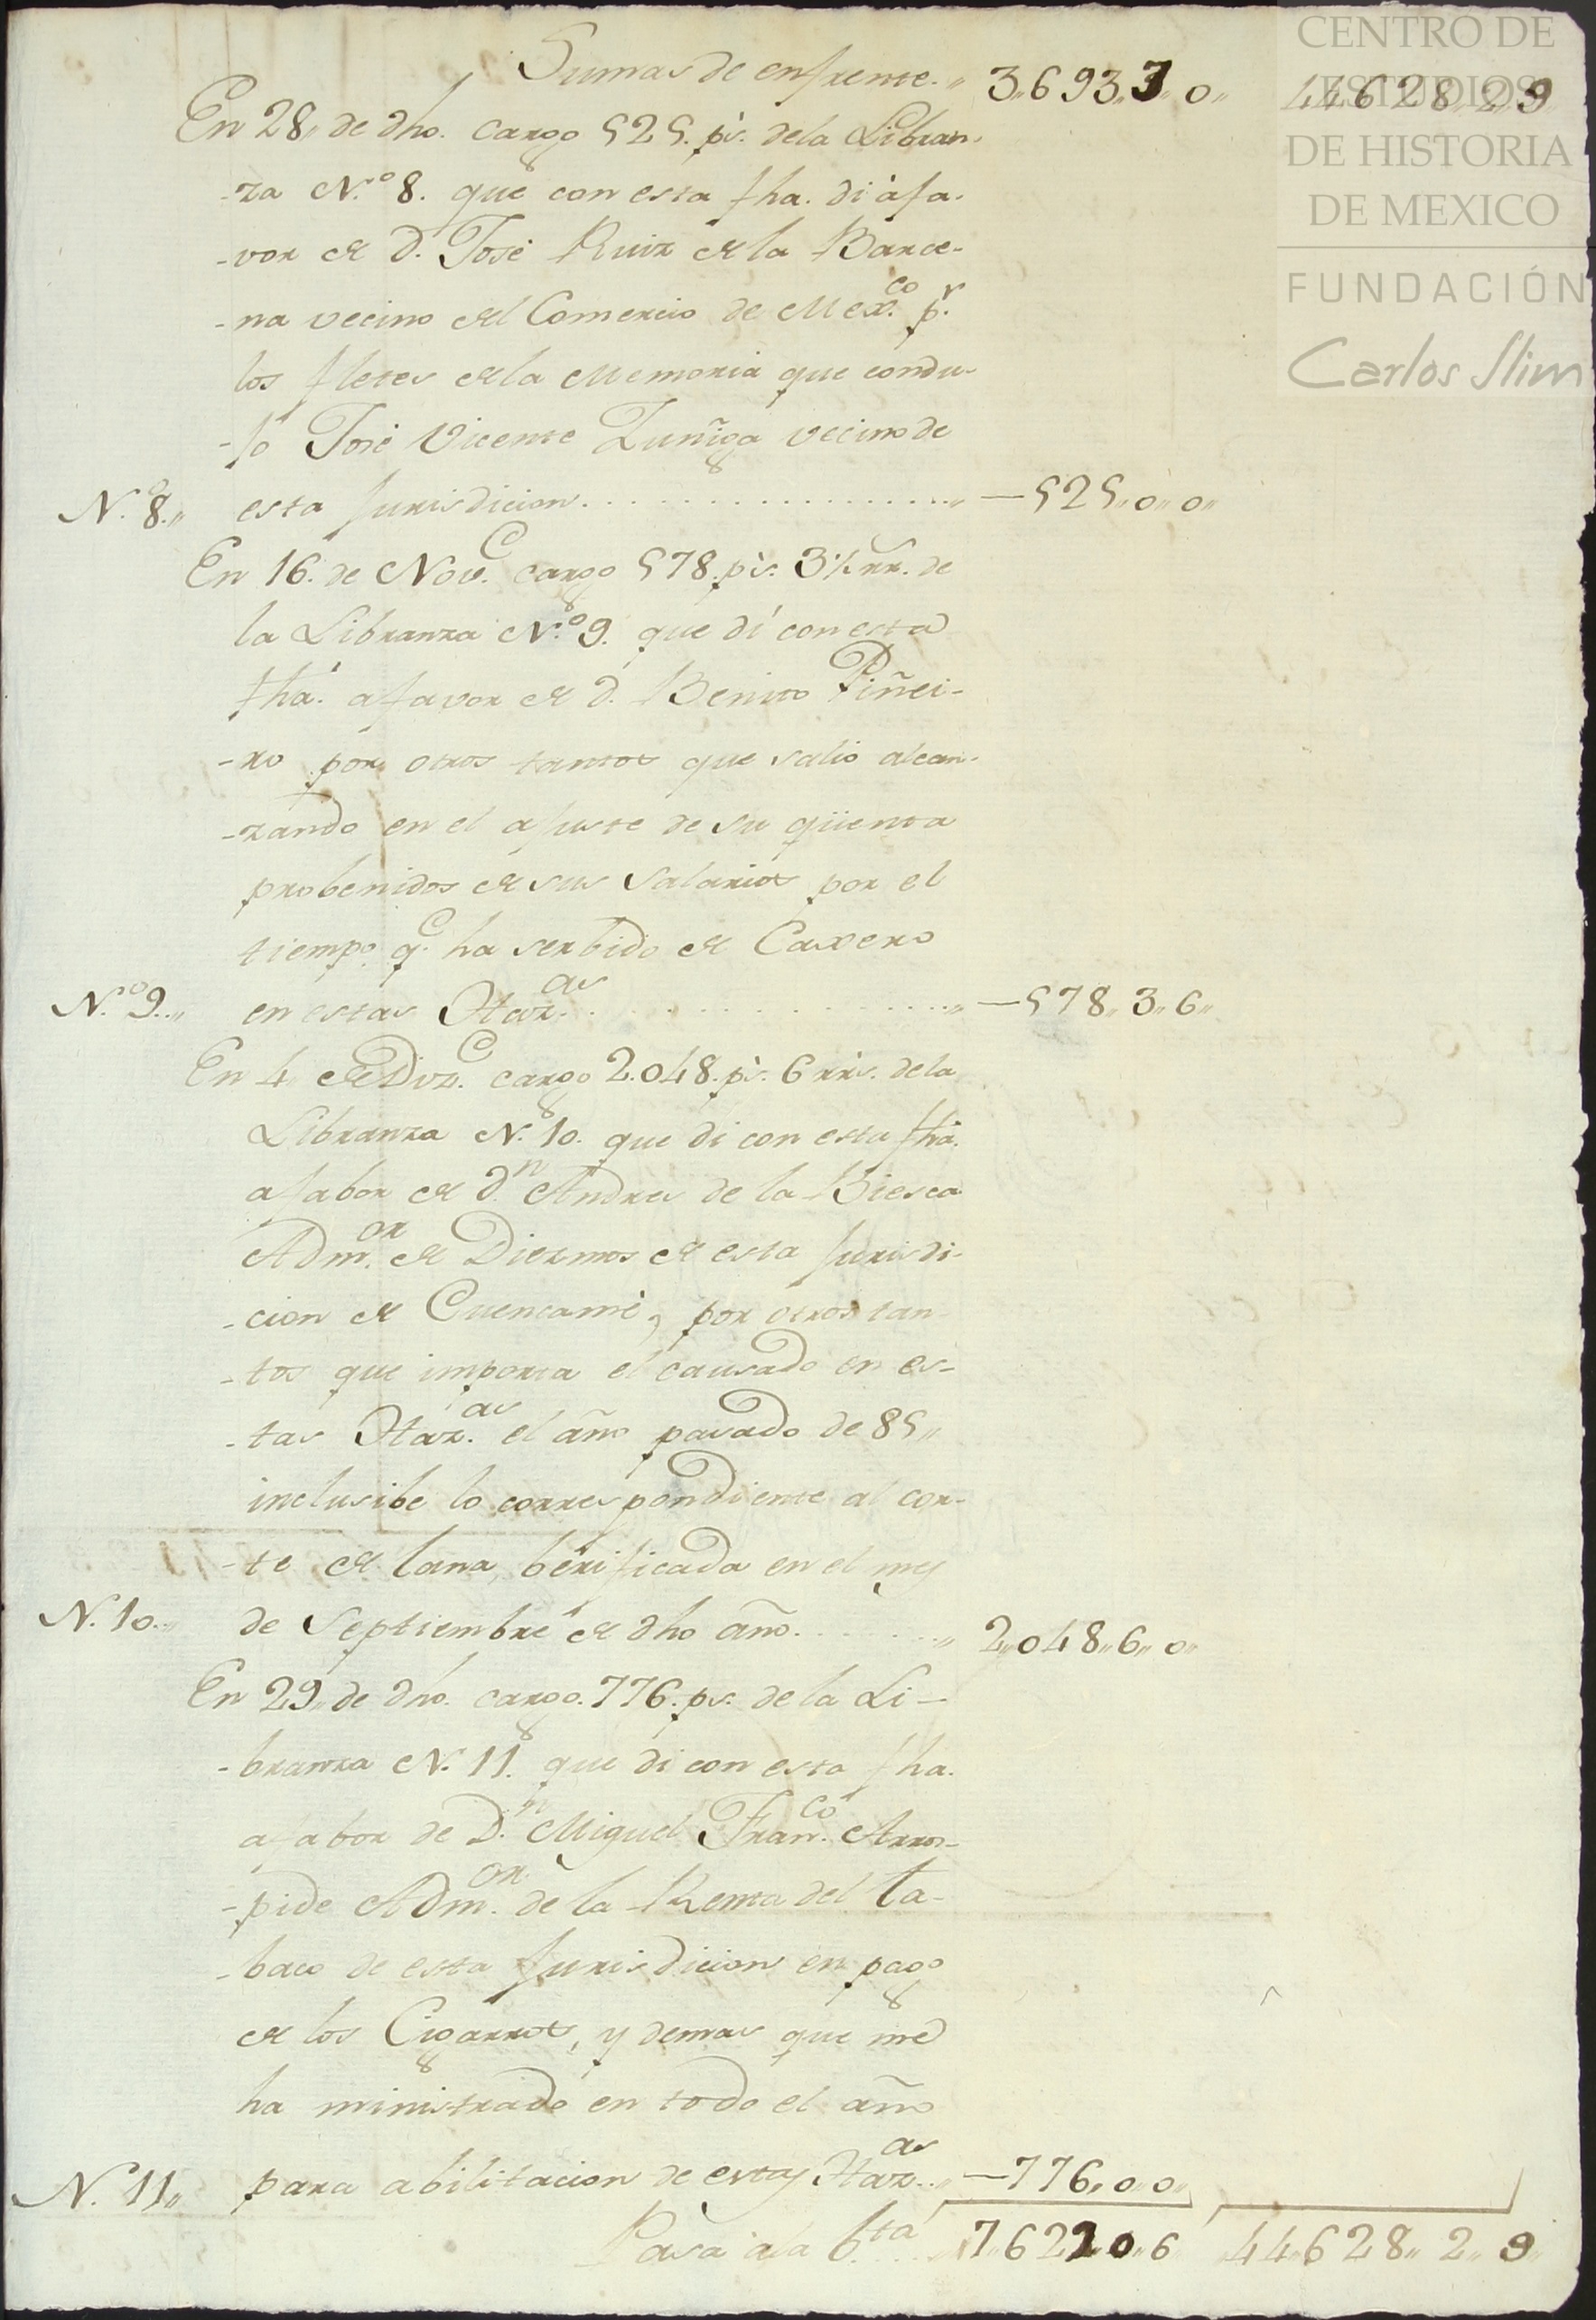 CENTRO DE
ESTUDIOS
DE HISTORIA
DE MEXICO
FUNDACIÓN
Carlos Slim
Sumas de enfrente.. 3,,693,,3,,0,, 44,,628,,2,,9
En 28,, de dho. cargo 525. ps. dela Libran-
-za N.º 8. que con esta fha. di áfa-
-vor de D. José Ruiz de la Barce-
-na vecino del Comercio de Mex.co p.r
los fletes de la Memoria que condu-
-jo José Vicente Zuñiga vecino de
N.º 8.,, esta Jurisdicion. . . . . . . . . . . . . . . . . . ,, —525,,0,,0,,
En 16. de Nov.e cargo 578. ps. 3½ rr. de
la Libranza N.º 9. que dí con esta
fha. a favor de d. Benito Piñei-
-ro por otros tantos que salio alcan-
-zando en el ajuste de su qüenta
probenidos de sus Salarios por el
tiempo q.e ha serbido de Caxero
N.º 9.,, en estas Haz.as . . . . . . . . . . . . . . . . ,, —578,,3,,6,,
En 4,, de Diz.e cargo 2.048. ps. 6 rrs. de la
Libranza N.º 10. que di con esta fha.
afabor de d.n Andres de la Biesca
Adm.or de Diezmos de esta Jurisdi-
-cion de Cuencamé, por otros tan-
-tos que importa el causado en es-
-tas Haz.as el año pasado de 85,,
inclusibe lo correspondiente al cor-
-te de lana, berificada en el mes
N. 10.,, de Septiembre de dho año. . . . . . . ,, 2,,048,,6,,0,,
En 29,, de dho. cargo. 776. ps. de la Li-
-branza N. 11. que di con esta fha.
afabor de D.n Miguel Fran.co Arros-
-pide Adm.or de la Renta del ta-
-baco de esta Jurisdicion en pago
de los Cigarros, y demas que me
ha ministrado en todo el año
N. 11,, para abilitacion de estas Haz.as ,, —776,,0,,0,,
Pasa á la b.ta . . . . 7,,622,,0,,6 44,,628,,2,,9